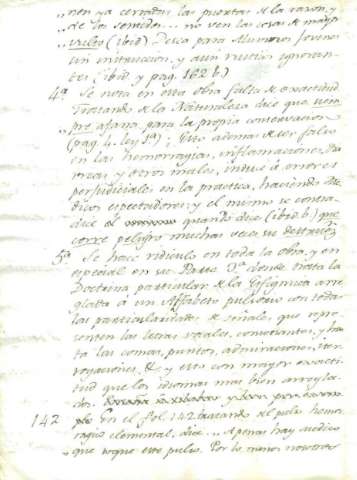 nen ya cerradas las puertas de la razon, y
de los sentidos... no ven las cosas de mayor
vulto (ibid) Desea para Alumnos Jovenes
sin instruccion, y aun rusticos ignoran-
tes (ibid y pag. 162 b)
4ª Se nota en esta obra falta de exactitud
Tratando de la Naturaleza dice que siem
pre afana para la propia conservacion
(pag. 4. ley 1ª); Esto ademas de ser falso
en las hemorragias, inflamaciones,
y otros males, induce á errores
perjudiciales en la practica, haciendo Me-
dicos espectadores; y el mismo se contra-
dice quando dice (ibid. b) que
corre peligro muchas veces
5ª Se hace ridiculo en toda la obra, y en
especial en su Parte 3ª donde trata la
Doctrina particular de la Esfigmica arre-
glatta á un Alfabeto pulsorio con todas
las particularidades de señales, que repre-
senten las letras vocales, consonantes, y has
ta las comas, puntos, admiraciones, inter-
rogaciones, &c y esto con mayor exacti-
tud que los idiomas mas bien arregla-
dos.
142 En el fol. 142 tratando del pulso hemor-
ragico elemental, dice... Apenas hay medico
que toque este pulso. Por lo menos nosotros